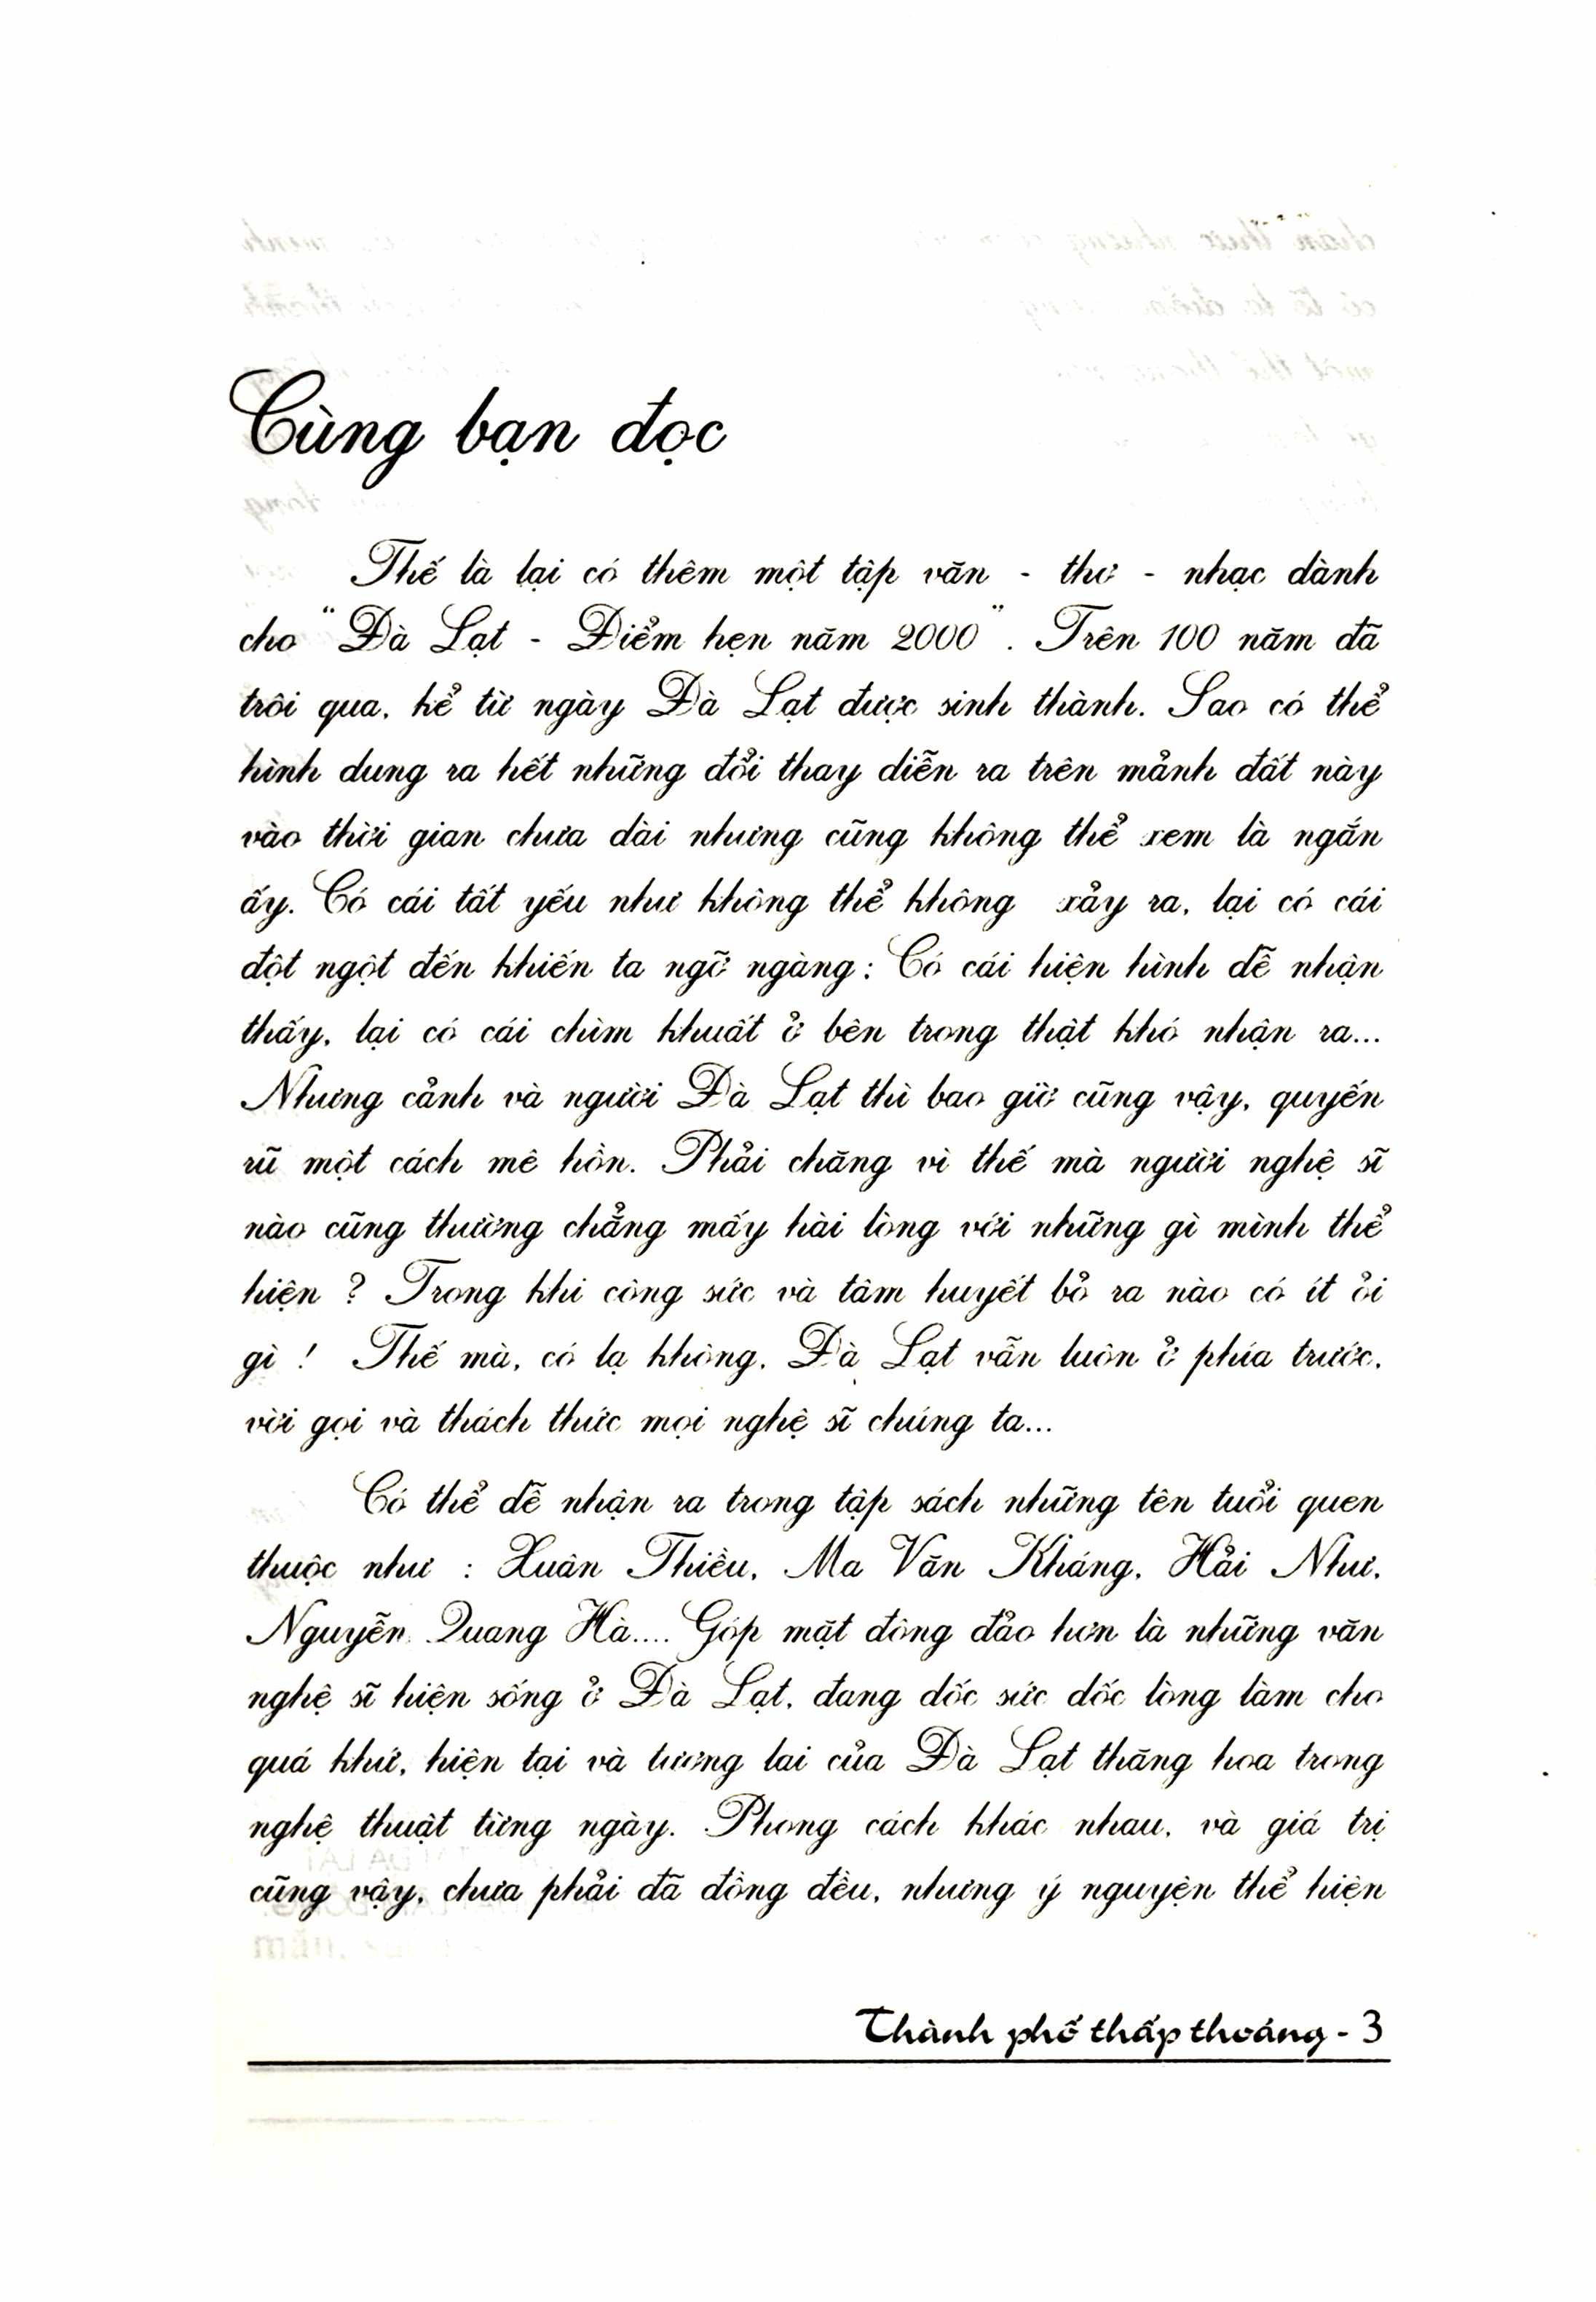 Cùng bạn đọc
Thế là lại có thêm một tập văn - thơ - nhạc dành
cho "Đà Lạt - Điểm hẹn năm 2000". Trên 100 năm đã
trôi qua, kể từ ngày Đà Lạt được sinh thành. Sao có thể
hình dung ra hết những đổi thay diễn ra trên mảnh đất này
vào thời gian chưa dài nhưng cũng không thể xem là ngắn
ấy. Có cái tất yếu như không thể không xảy ra, lại có cái
đột ngột đến khiến ta ngỡ ngàng; Có cái hiện hình dễ nhận
thấy, lại có cái chìm khuất ở bên trong thật khó nhận ra...
Nhưng cảnh và người Đà Lạt thì bao giờ cũng vậy, quyến
rũ một cách mê hồn. Phải chăng vì thế mà người nghệ sĩ
nào cũng thường chẳng mấy hài lòng với những gì mình thể
hiện ? Trong khi công sức và tâm huyết bỏ ra nào có ít ỏi
gì ! Thế mà, có lạ không, Đà Lạt vẫn luôn ở phía trước,
vời gọi và thách thức mọi nghệ sĩ chúng ta...
Có thể dễ nhận ra trong tập sách những tên tuổi quen
thuộc như : Xuân Thiều, Ma Văn Kháng, Hải Như,
Nguyễn Quang Hà.... Góp mặt đông đảo hơn là những văn
nghệ sĩ hiện sống ở Đà Lạt, đang dốc sức dốc lòng làm cho
quá khứ, hiện tại và tương lai của Đà Lạt thăng hoa trong
nghệ thuật từng ngày. Phong cách khác nhau, và giá trị
cũng vậy, chưa phải đã đồng đều, nhưng ý nguyện thể hiện
Thành phố thấp thoáng - 3